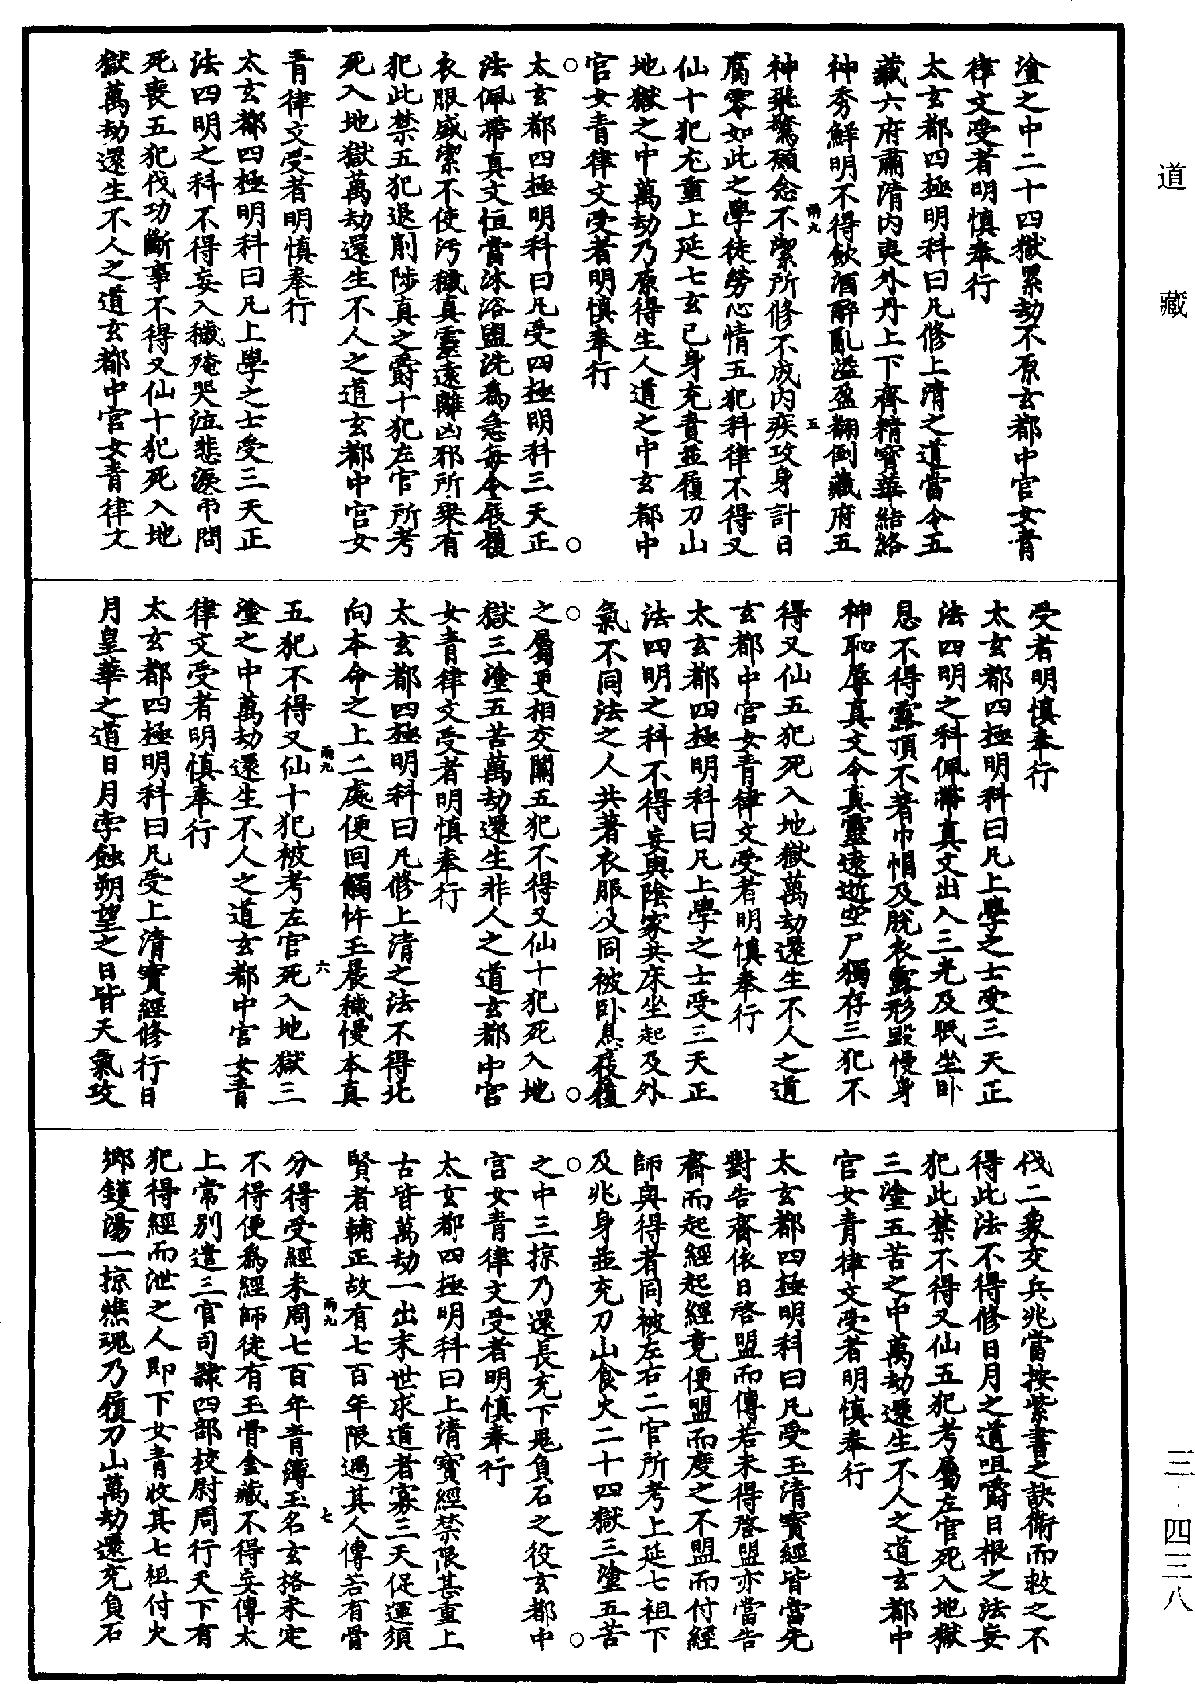 塗之中二十四獄累劫不原玄都中官女青
律文受者明慎奉行
太玄都四極明科曰凡修上清之道當令五
藏六府肅清內夷外丹上下齊精寶華結絡
神秀鮮明不得飲酒醉亂溢盈翻倒藏府五
神飛驚願念不潔所修不成內疾攻身計日
腐零如此之學徒勞心情五犯科律不得又
仙十犯充重上延七玄己身充責並履刀山
地獄之中萬劫乃原得生人道之中玄都中
官女青律文受者明慎奉行
太玄都四極明科曰凡受四極明科三天正
法佩帶真文恒當沐浴盥洗為急每令展檀
衣服盛潔不使污穢真靈遠離凶邪所乘有
犯此禁五犯退削陟真之爵十犯左官所考
死入地獄萬劫還生不人之道玄都中宮女
青律文受者明慎奉行
太玄都四極明科曰凡上學之士受三天正
法四明之科不得妄入穢殗哭泣悲淚弔問
死喪五犯伐功斷事不得又仙十犯死入地
獄萬劫還生不人之道玄都中官女青律文
受者明慎奉行
太玄都四極明科曰凡上學之士受三天正
法四明之科佩帶真文出入三光及眠坐卧
息不得露頂不著巾帽及脫衣露形毀慢身
神恥辱真文令真靈遠逝空尸獨存三犯不
得又仙五犯死入地獄萬劫還生不人之道
玄都中宮女青律文受者明慎奉行
太玄都四極明科曰凡上學之士受三天正
法四明之科不得妄與陰家共床坐起及外
氣不同法之人共著衣服及同被卧息疫穢
之屬更相交關五犯不得又仙十犯死入地
獄三塗五苦萬劫還生非人之道玄都中宮
女青律文受者明慎奉行
太玄都四極明科曰凡修上清之法不得北
向本命之上二處便回觸忤玉晨穢慢本真
五犯不得又仙十犯被考左官死入地獄三
塗之中萬劫還生不人之道玄都中宮女青
律文受者明慎奉行
太玄都四極明科曰凡受上清寶經修行日
月皇華之道日月孛蝕朔望之日皆天氣攻
伐二象交兵兆當按紫書之訣術而救之不
得此法不得修日月之道咀嚼日根之法妄
犯此禁不得又仙五犯考屬左官死入地獄
三塗五苦之中萬劫還生不人之道玄都中
官女青律文受者明慎奉行
太玄都四極明科曰凡受玉清寶經皆當先
對告齋依日啓盟而傳若未得啓盟亦當告
齋而起經起經竟便盟而度之不盟而付經
師與得者同被左右二官所考上延七祖下
及兆身並充刀山食火二十四獄三塗五苦
之中三掠乃還長充下鬼負石之役玄都中
宮女青律文受者明慎奉行
太玄都四極明科曰上清寶經禁限甚重上
古皆萬劫一出末世求道者寡三天促運須
賢者輔正故有七百年限遇其人傳若有骨
分得受經未周七百年青簿玉名玄格未定
不得便為經師徒有玉骨金藏不得妄傳太
上常別遣三官司隸四部校尉周行天下有
犯得經而泄之人即下女青收其七祖付火
鄉鑊湯一掠燋魂乃履刀山萬劫還充負石
兩九
五
兩九
六
兩九
七
道藏
三·四三八